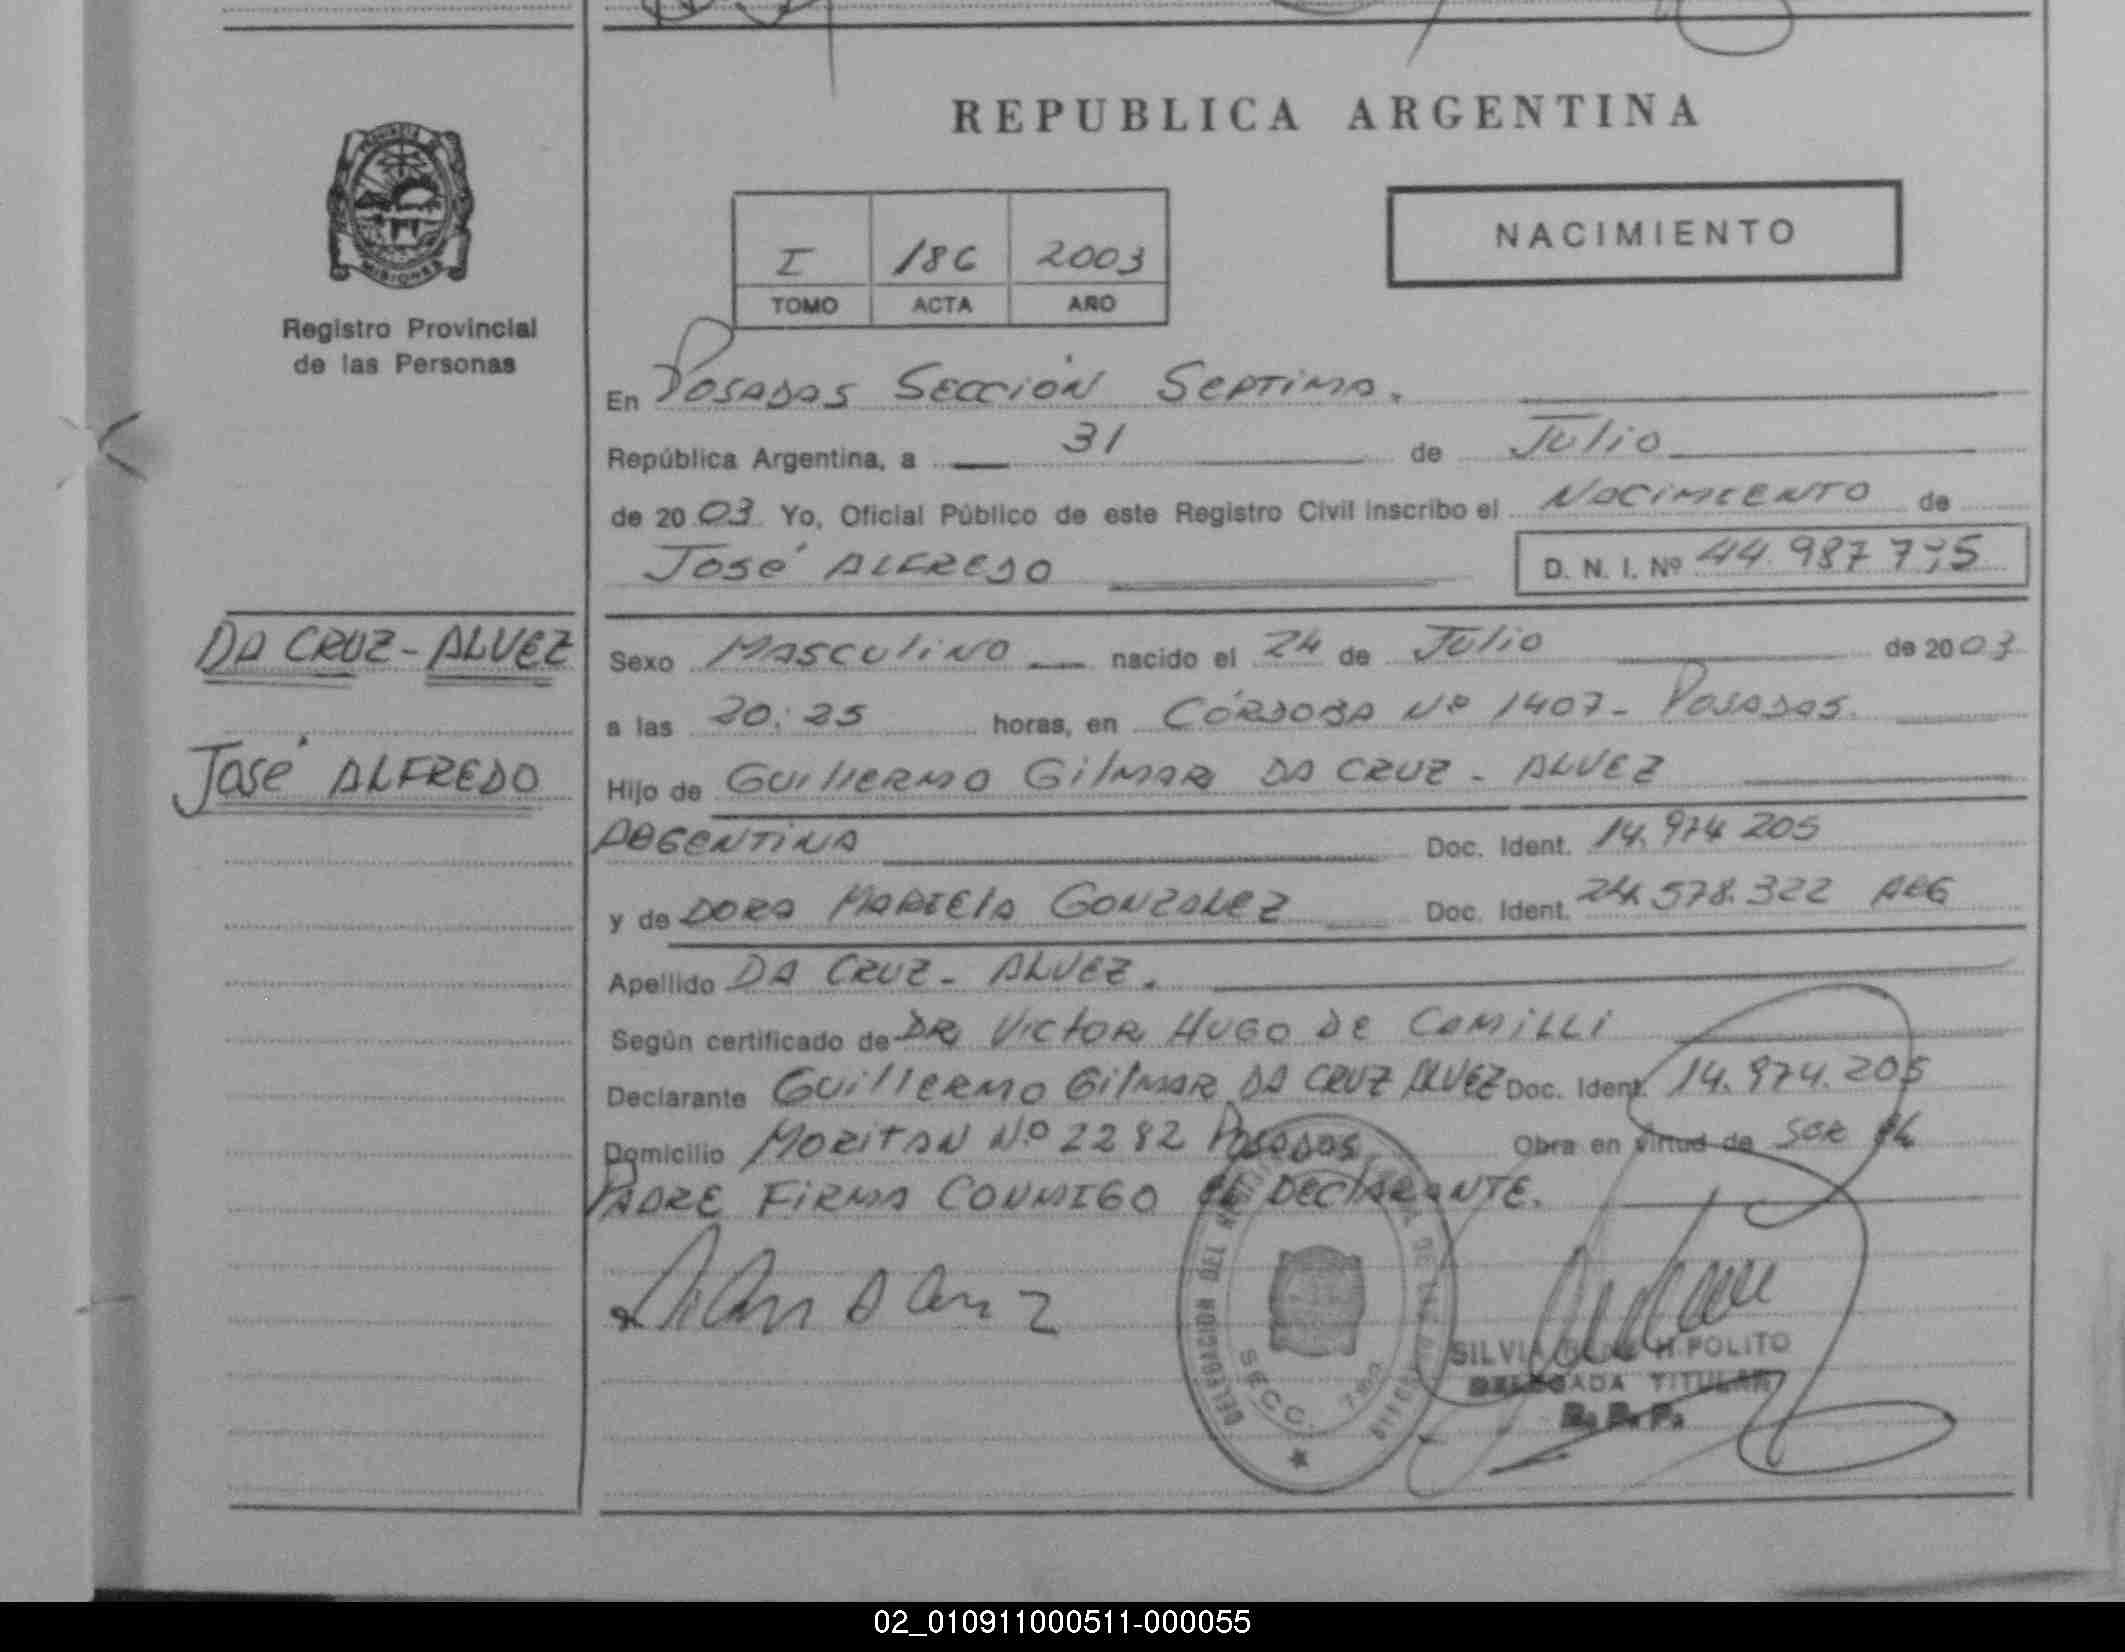 REPUBLICA ARGENTINA
NACIMIENTO
I 186 2003
TOMO ACTA AÑO
Registro Provincial
de las Personas
En Posadas Sección Septima.
República Argentina, a 31 de Julio
de 2003 Yo, Oficial Público de este Registro Civil inscribo el Nacimiento de
José Alfredo D. N. I. Nº 44.987 775
DA CRUZ - ALVEZ
José ALFREDO
Sexo Masculino nacido el 24 de Julio de 2003
a las 20:25 horas, en Córdoba Nº 1407 - Posadas.
Hijo de Guillermo Gilmar DA CRUZ - ALVEZ
Argentina Doc. Ident. 14.974 205
y de DORA MARIELA GONZALEZ Doc. Ident. 24.578.322 ARG
Apellido DA CRUZ - ALVEZ.
Según certificado de DR VICTOR HUGO DE CAMILLI
Declarante Guillermo Gilmar DA CRUZ ALVEZ Doc. Ident. 14.974.205
Domicilio Nº 2282 Posadas Obra en virtud de ser el
PADRE FIRMA CONMIGO EL DECLARANTE.
DELEGACION DEL
SECC. 7ma
SILVIA POLITO
DELEGADA TITULAR
R. P. P.
02_010911000511-000055